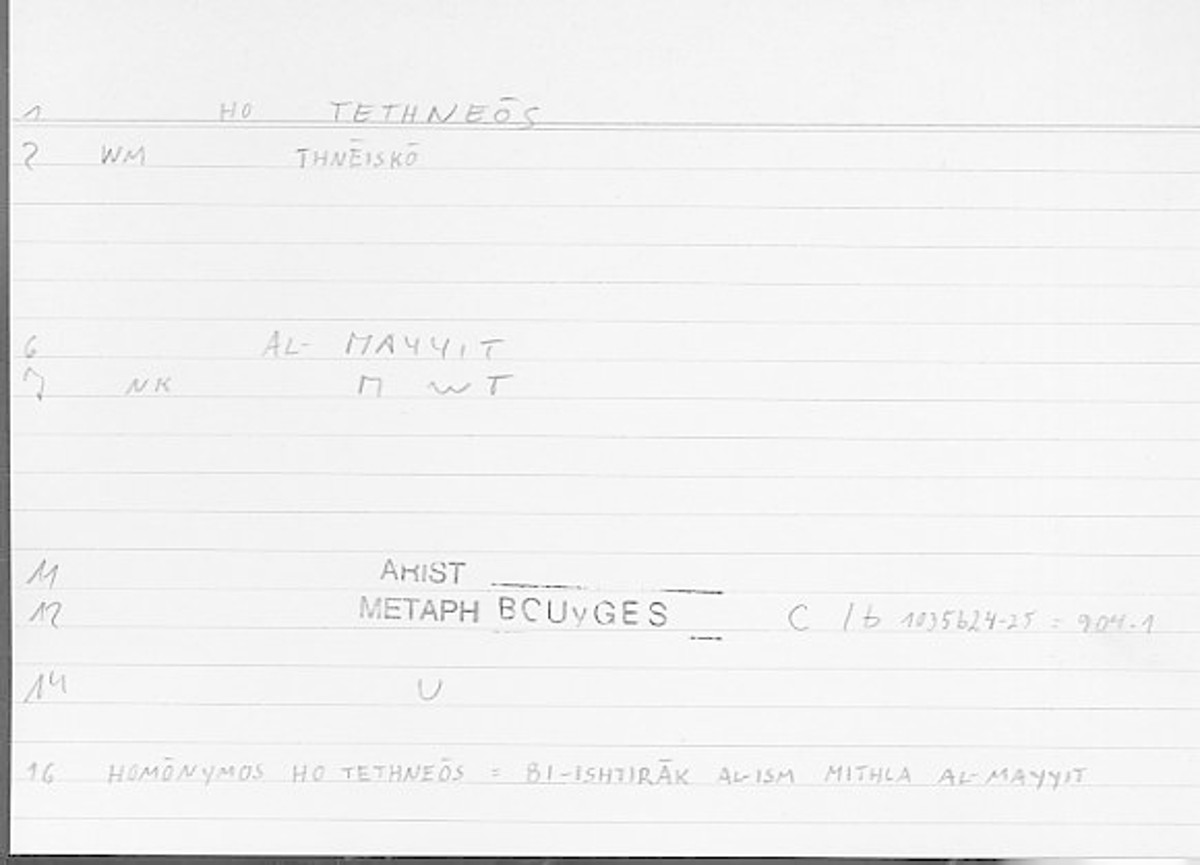 1 HO TETHNEŌS
2 WM THNĒISKŌ
6 AL- MAYYIT
7 NK M W T
11 ARIST
12 METAPH BOUYGES C / b 1035b24-25 = 904-1
14 U
16 HOMŌNYMOS HO TETHNEŌS = BI-ISHTIRĀK AL-ISM MITHLA AL-MAYYIT